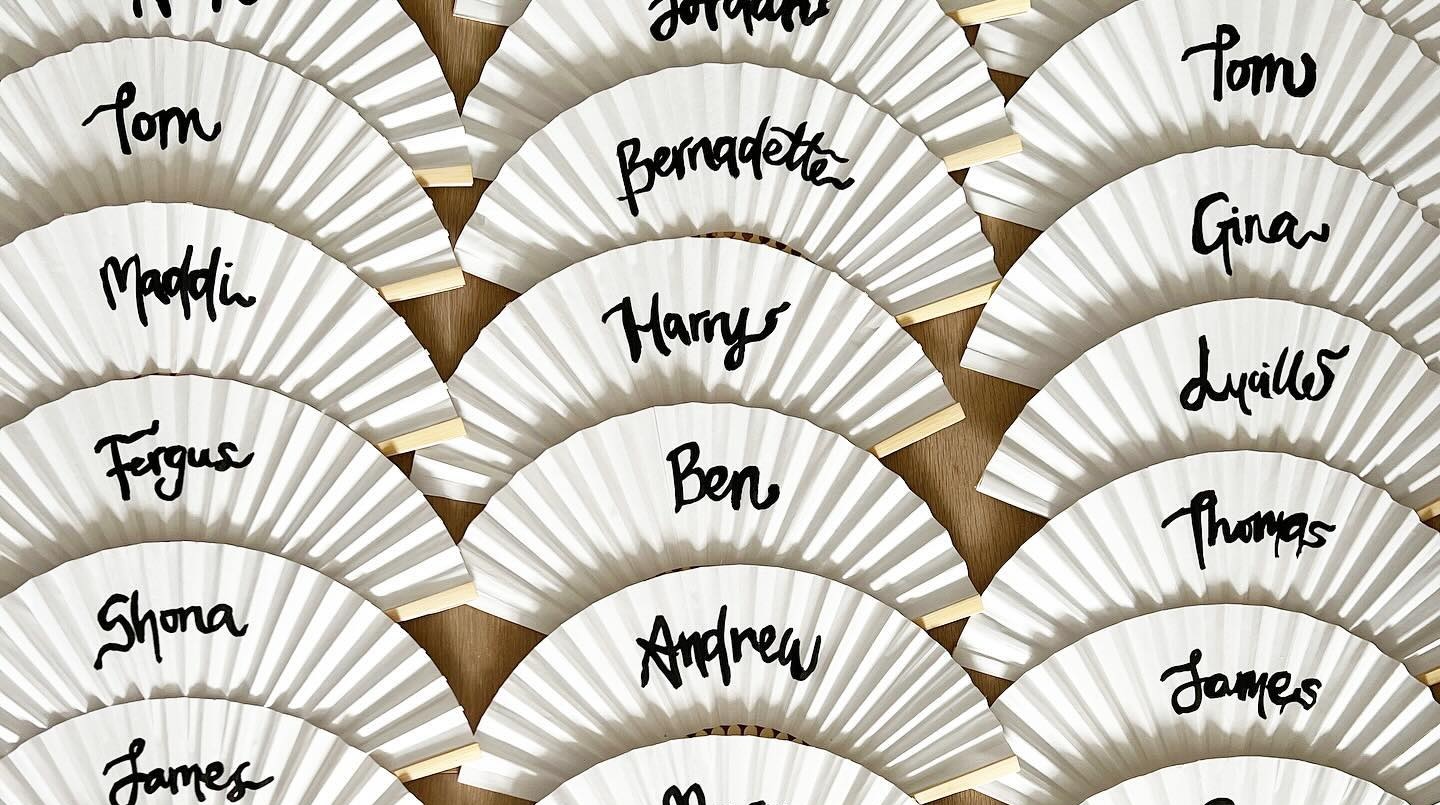 Tom
Maddi
Fergus
Shona
James
Jordan
Bernadette
Harry
Ben
Andrew
Tom
Gina
Lucille
Thomas
James